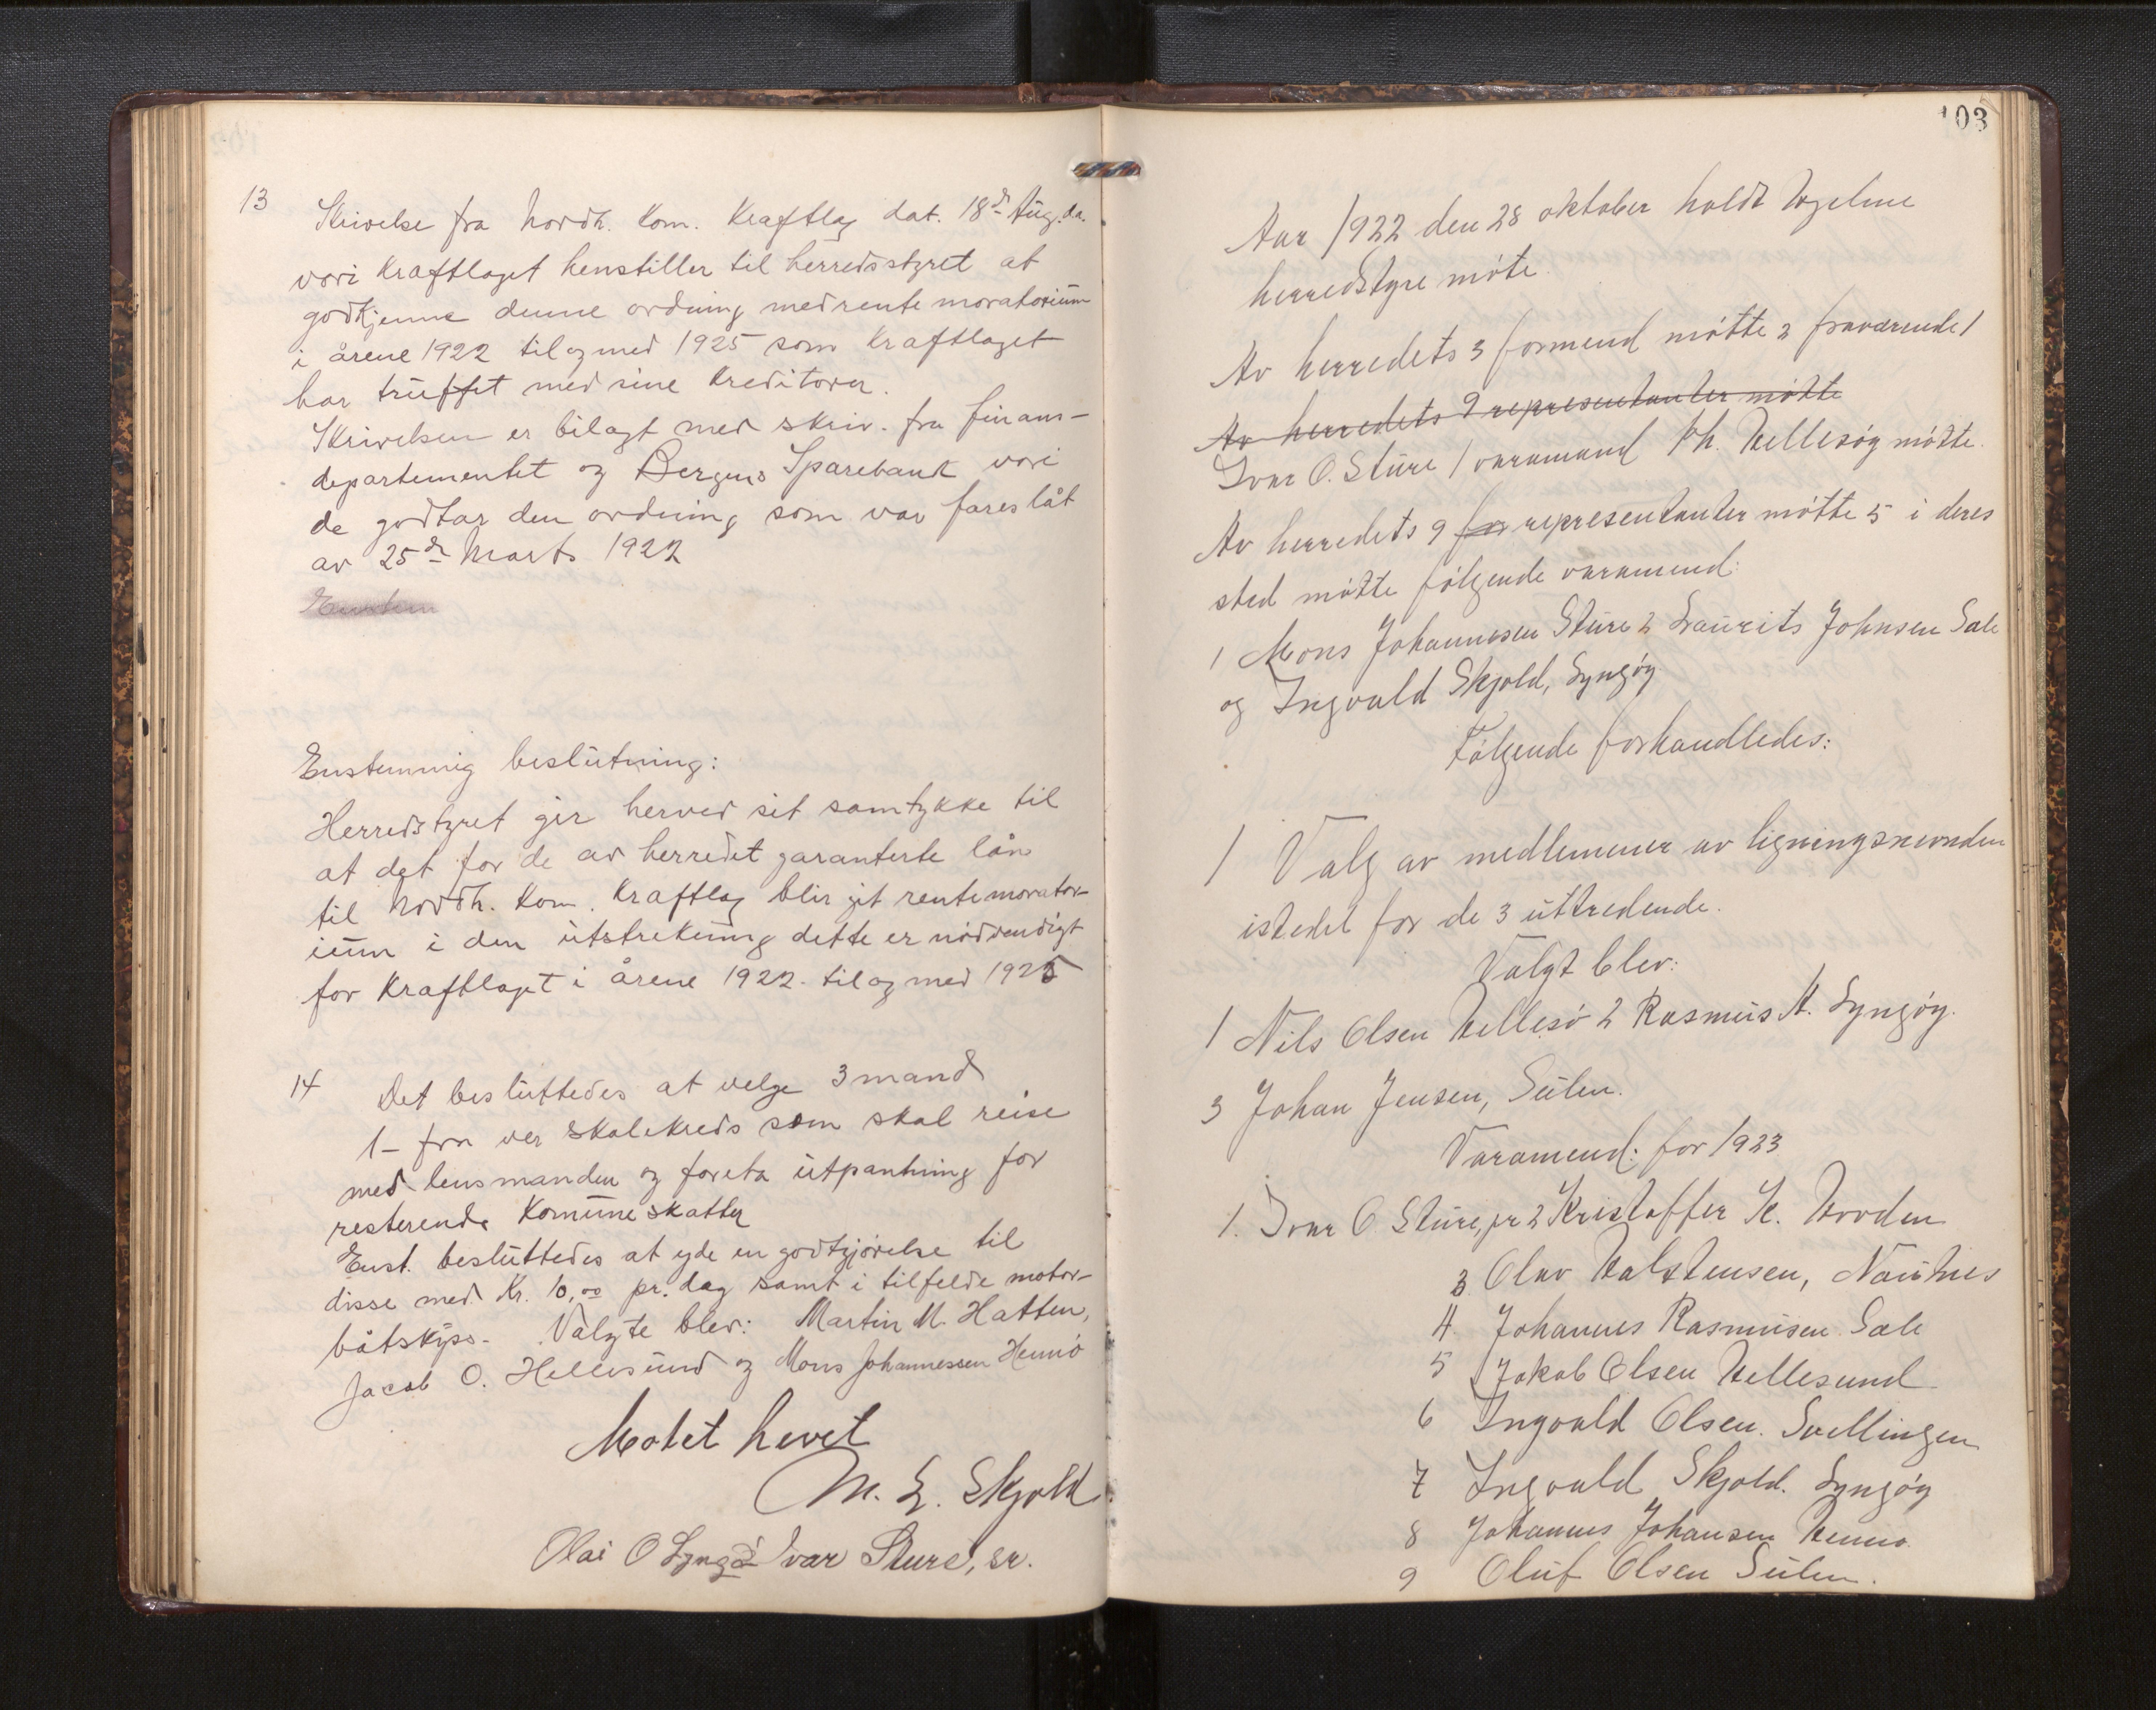 13 Skrivelse fra Nordh. Kom. Kraftlag dat. 18de Aug. da.
vori Kraftlaget henstiller til herredsstyret at
godkjenne denne ordning med rente moratorium
i årene 1922 til og med 1925 som Kraftlaget
har trüffet med sine Kreditorer.
Skrivelsen er bilagt med skriv. fra finans-
departementet og Bergens Sparebank vori
de godtar den ordning som var foreslåt
av 25de Marts 1922
Enstem
Enstemmig beslütning:
Herredstyret gir herved sit samtykke til
at det for de av herredet garanterte lån
til Nordh. Kom. Kraftlag blir git rentemorator-
iüm i den ütstrekning dette er nödvendigt
for Kraftlaget i årene 1922. til og med 1925
14 Det beslüttedes at velge 3 mand
1 - fra ver skolekreds som skal reise
med lensmanden og foreta ütpantning for
resterende Komüneskatter
Enst. beslüttedes at yde en godtgjörelse til
disse med Kr. 10,00 pr. dag samt i tilfelde motor-
båtskyss. Valgte blev: Martin M. Hatten,
Jacob O. Hellesünd og Mons Johannessen Hennö
Motet hevet
M. L. Skjold
Olai O Lyngö Ivar Sture, sr.
103
Aar 1922 den 28 oktober holdt Hjelme
herredstyre möte.
Av herredets 3 formend mötte 2 fraværende 1
Av herredets 9 representanter mötte
Ivar O. Stüre 1 varamand Joh. Hellesöy mötte.
Av herredets 9 for representanter mötte 5 i deres
sted mötte fölgende varamend:
1 Mons Johannesen Stüre 2 Laürits Johnsen Sale
og Ingvald Skjold, Lyngöy
Fölgende forhandledes:
1 Valg av medlemmer av ligningsnevnden
istedet for de 3 üttredende.
Valgt blev:
1 Nils Olsen Hellesö 2 Rasmüs A. Lyngöy.
3 Johan Jensen, Sülen.
Varamend: for 1923
1. Ivar O Stüre, jr 2 Kristoffer K. Hovden
3 Olav Halstensen, Naütnes
4 Johannes Rasmüsen Sale
5 Jakob Olsen Hellesund
6 Ingvald Olsen. Svellingen
7 Ingvald Skjold. Lyngöy
8 Johannes Johansen Henno.
9 Olüf Olsen Sülen.